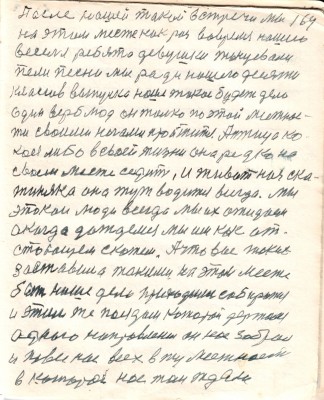 После нашей такой встречи мы 164
на этом месте как раз вовремя нашего
веселя ребята девушки танцевали
пели песни мы ради нашего десяти
классов выпуска наше такое будет дело
один верблюд он только по этой местнос-
ти своими ногами протопти. А птица ко-
кая либо в своей жизни она редко на
своем месте сидит, и животная ска-
тинка она тут водится всегда. Мы
этаких людей всегда мы их ожидаем
а когда дождемся мы им как от-
стоящем скажем. А кто вас таких
заставила такими на этом месте
быт наше дело приходится собирать
и этим же поездам который держит
одного направления он нас забрал
и повез нас всех в ту местность
в которой нас там ждали